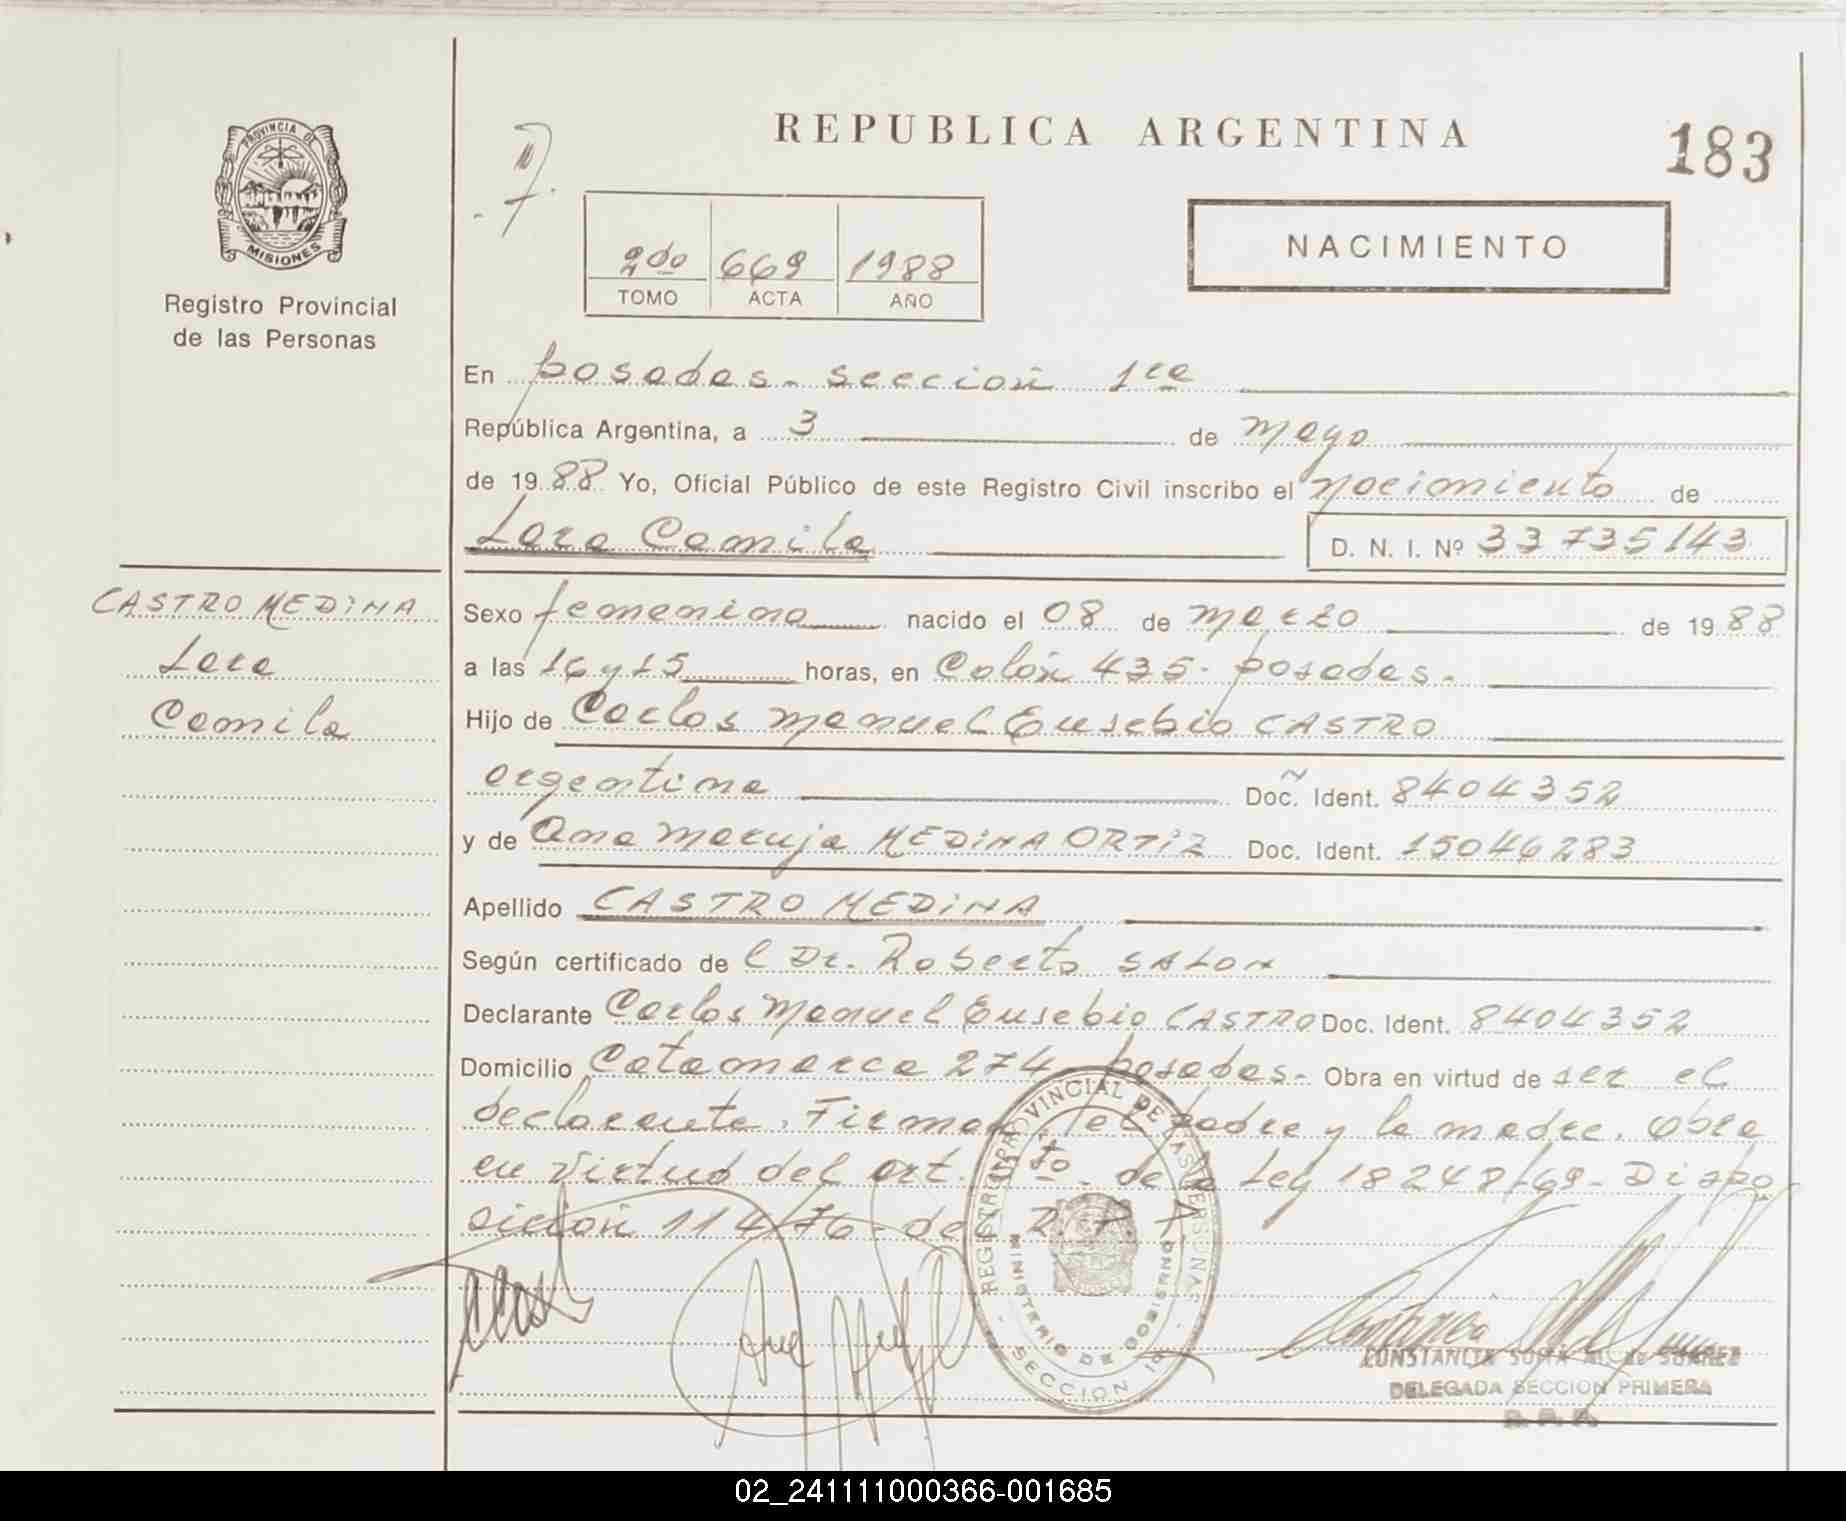 REPUBLICA ARGENTINA
183
PROVINCIA DE
MISIONES
Registro Provincial
de las Personas
2do 669 1988
TOMO ACTA AÑO
NACIMIENTO
En posadas - sección 1ra
República Argentina, a 3 de mayo
de 1988 Yo, Oficial Público de este Registro Civil inscribo el nacimiento de
Lara Camila D. N. I. Nº 33735143
CASTRO MEDINA
Lara
Camila
Sexo femenino nacido el 08 de marzo de 1988
a las 16 y 15 horas, en Colón 435 - posadas.-
Hijo de Carlos Manuel Eusebio CASTRO
argentina Doc. Ident. 8404352
y de Ana Maruja MEDINA ORTIZ Doc. Ident. 15046283
Apellido CASTRO MEDINA
Según certificado de l Dr. Roberto
Declarante Carlos Manuel Eusebio CASTRO Doc. Ident. 8404352
Domicilio Catamarca 274 - posadas.- Obra en virtud de ser el
declarante. Firman el padre y la madre. Obra
en virtud del art. 5to. de la Ley 18248/69 - Dispo
sición 114/76 - del R. P. P.
REGISTRO PROVINCIAL DE LAS PERSONAS
MINISTERIO DE GOBIERNO
SECCION 1a
DELEGADA SECCION PRIMERA
R. P. P.
02_241111000366-001685